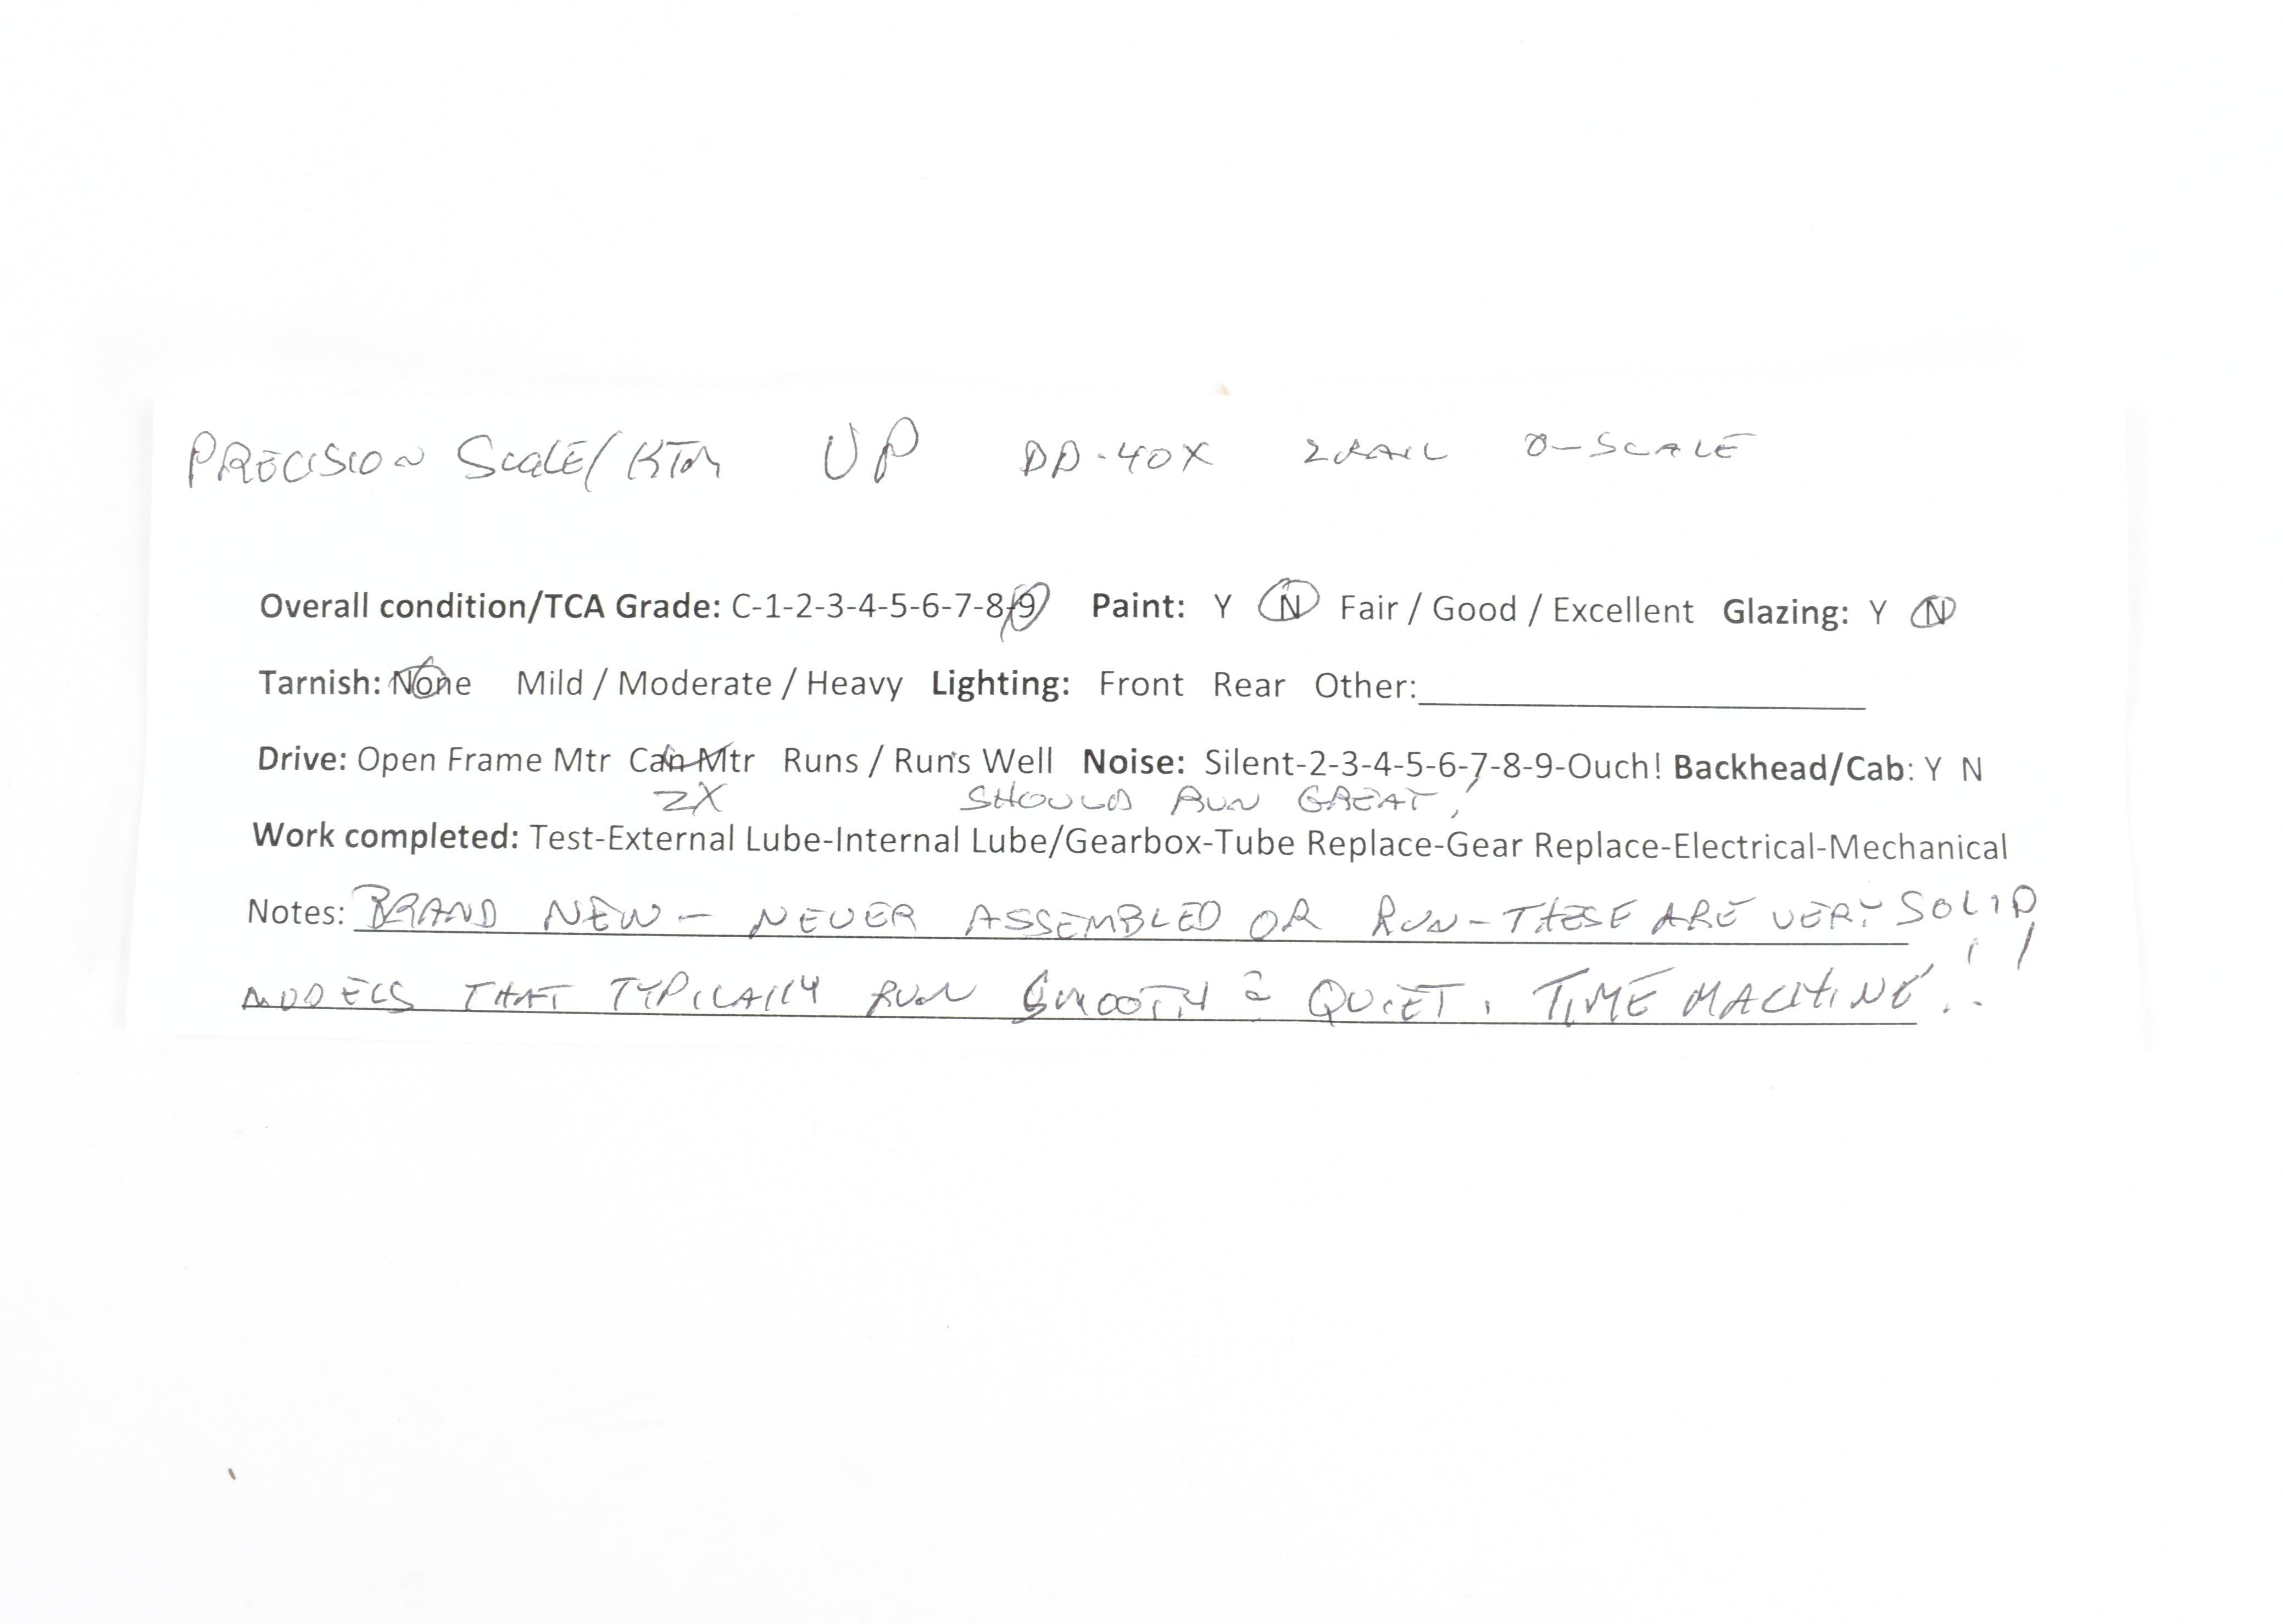 PRECISION Scale/KTM UP DD-40X 2RAIL O-SCALE
Overall condition/TCA Grade: C-1-2-3-4-5-6-7-8-9 Paint: Y N Fair / Good / Excellent Glazing: Y N
Tarnish: None Mild / Moderate / Heavy Lighting: Front Rear Other:
Drive: Open Frame Mtr Can Mtr Runs / Run's Well Noise: Silent-2-3-4-5-6-7-8-9-Ouch! Backhead/Cab: Y N
2X SHOULD RUN GREAT!
Work completed: Test-External Lube-Internal Lube/Gearbox-Tube Replace-Gear Replace-Electrical-Mechanical
Notes: BRAND NEW - NEVER ASSEMBLED OR RUN - THESE ARE VERY SOLID
MODELS THAT TYPICALLY RUN SMOOTH & QUIET. TIME MACHINE!!